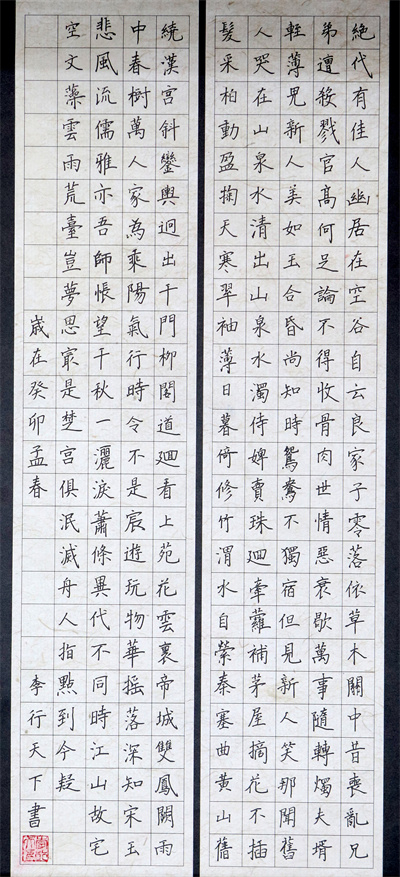 絕代有佳人幽居在空谷自云良家子零落依草木關中昔喪亂兄
弟遭殺戮官高何足論不得收骨肉世情惡衰歇萬事隨轉燭夫壻
輕薄兒新人美如玉合昏尚知時鴛鴦不獨宿但見新人笑那聞舊
人哭在山泉水清出山泉水濁侍婢賣珠廻牽蘿補茅屋摘花不插
髮采柏動盈掬天寒翠袖薄日暮倚修竹渭水自縈秦塞曲黃山舊
繞漢宮斜鑾輿迥出千門柳閣道廻看上苑花雲裏帝城雙鳳闕雨
中春樹萬人家為乘陽氣行時令不是宸遊玩物華搖落深知宋玉
悲風流儒雅亦吾師悵望千秋一灑淚蕭條異代不同時江山故宅
空文藻雲雨荒臺豈夢思最是楚宮俱泯滅舟人指點到今疑
歲在癸卯孟春 李行天下書